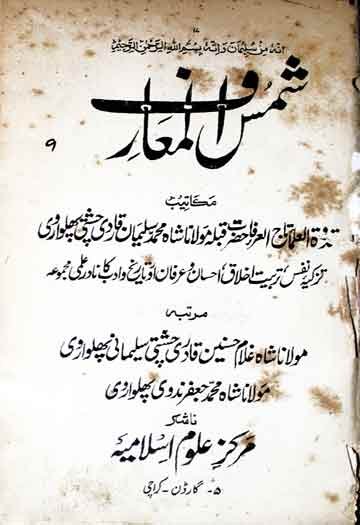 انہ من سلیمان و انہ بسم اللہ الرحمن الرحیم
شمس المعارف
۹
مکاتیب
قدوۃ العلما تاج العرفا حضرت قبلہ مولانا شاہ محمد سلیمان قادری چشتی پھلواروی
تزکیۂ نفس، تربیت اخلاق، احسان و عرفان اور تاریخ و ادب کا نادر علمی مجموعہ
مرتبہ
مولانا شاہ غلام حسنین قادری چشتی سلیمانی پھلواروی
مولانا شاہ محمد جعفر ندوی پھلواروی
ناشر
مرکز علوم اسلامیہ
۵- گارڈن - کراچی